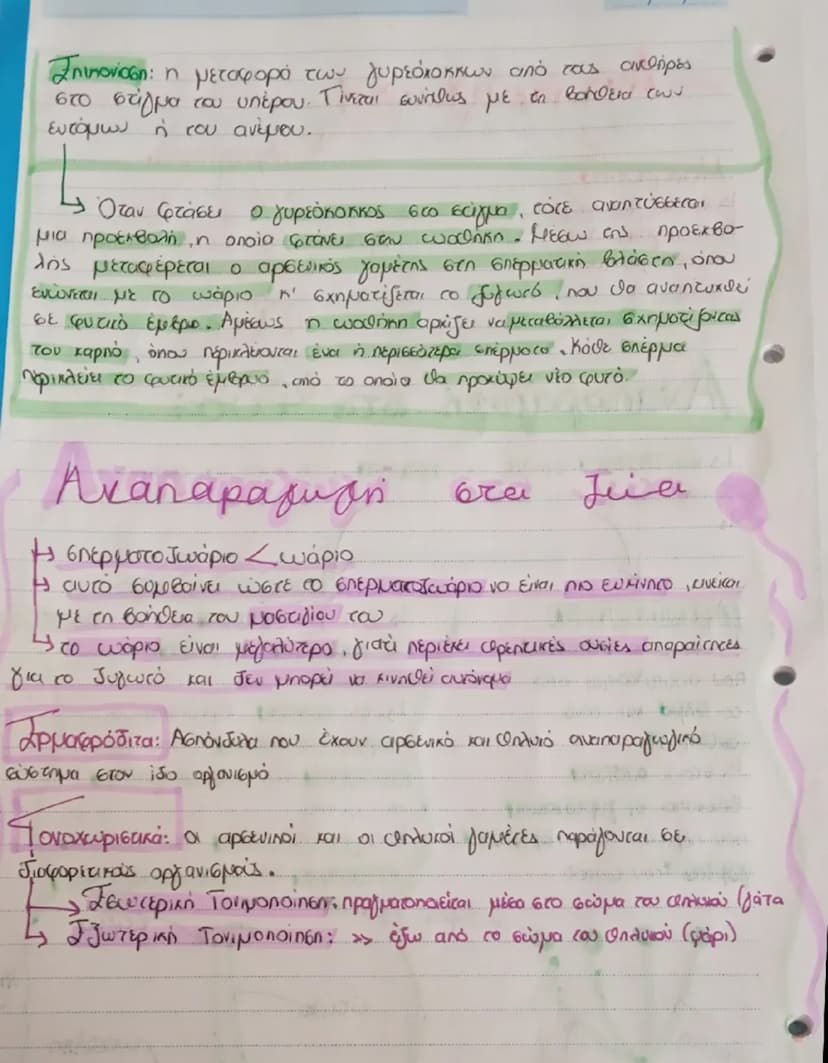 Επικονίαση: η μεταφορά των γυρεόκοκκων από τους ανθήρες
στο στίγμα του υπέρου. Γίνεται συνήθως με τη βοήθεια των
εντόμων ή του ανέμου.
Όταν φτάσει ο γυρεόκοκκος στο στίγμα, τότε αναπτύσσεται
μια προεκβολή, η οποία φτάνει στην ωοθήκη. Μέσω της προεκβο-
λής μεταφέρεται ο αρσενικός γαμέτης στη σπερματική βλάστη, όπου
ενώνεται με το ωάριο κ' σχηματίζεται το ζυγωτό, που θα αναπτυχθεί
σε φυτικό έμβρυο. Αμέσως η ωοθήκη αρχίζει να μεταβάλλεται σχηματίζοντας
τον καρπό, όπου περικλείονται ένα ή περισσότερα σπέρματα. Κάθε σπέρμα
περικλείει το φυτικό έμβρυο, από το οποίο θα προκύψει νέο φυτό.
Αναπαραγωγή στα ζώα
σπερματοζωάριο < ωάριο
αυτό συμβαίνει ώστε το σπερματοζωάριο να είναι πιο ευκίνητο, κινείται
με τη βοήθεια του μαστιδίου του
το ωάριο είναι μεγαλύτερο, γιατί περιέχει θρεπτικές ουσίες απαραίτητες
για το ζυγωτό και δεν μπορεί να κινηθεί αυτόνομα
Ερμαφρόδιτα: Ασπόνδυλα που έχουν αρσενικό και θηλυκό αναπαραγωγικό
σύστημα στον ίδο οργανισμό
Γονοχωριστικά: οι αρσενικοί και οι θηλυκοί γαμέτες παράγονται σε
διαφορετικούς οργανισμούς.
Εσωτερική Γονιμοποίηση: πραγματοποιείται μέσα στο σώμα του θηλυκού (γάτα
Εξωτερική Γονιμοποίηση: >> έξω από το σώμα του θηλυκού (ψάρι)